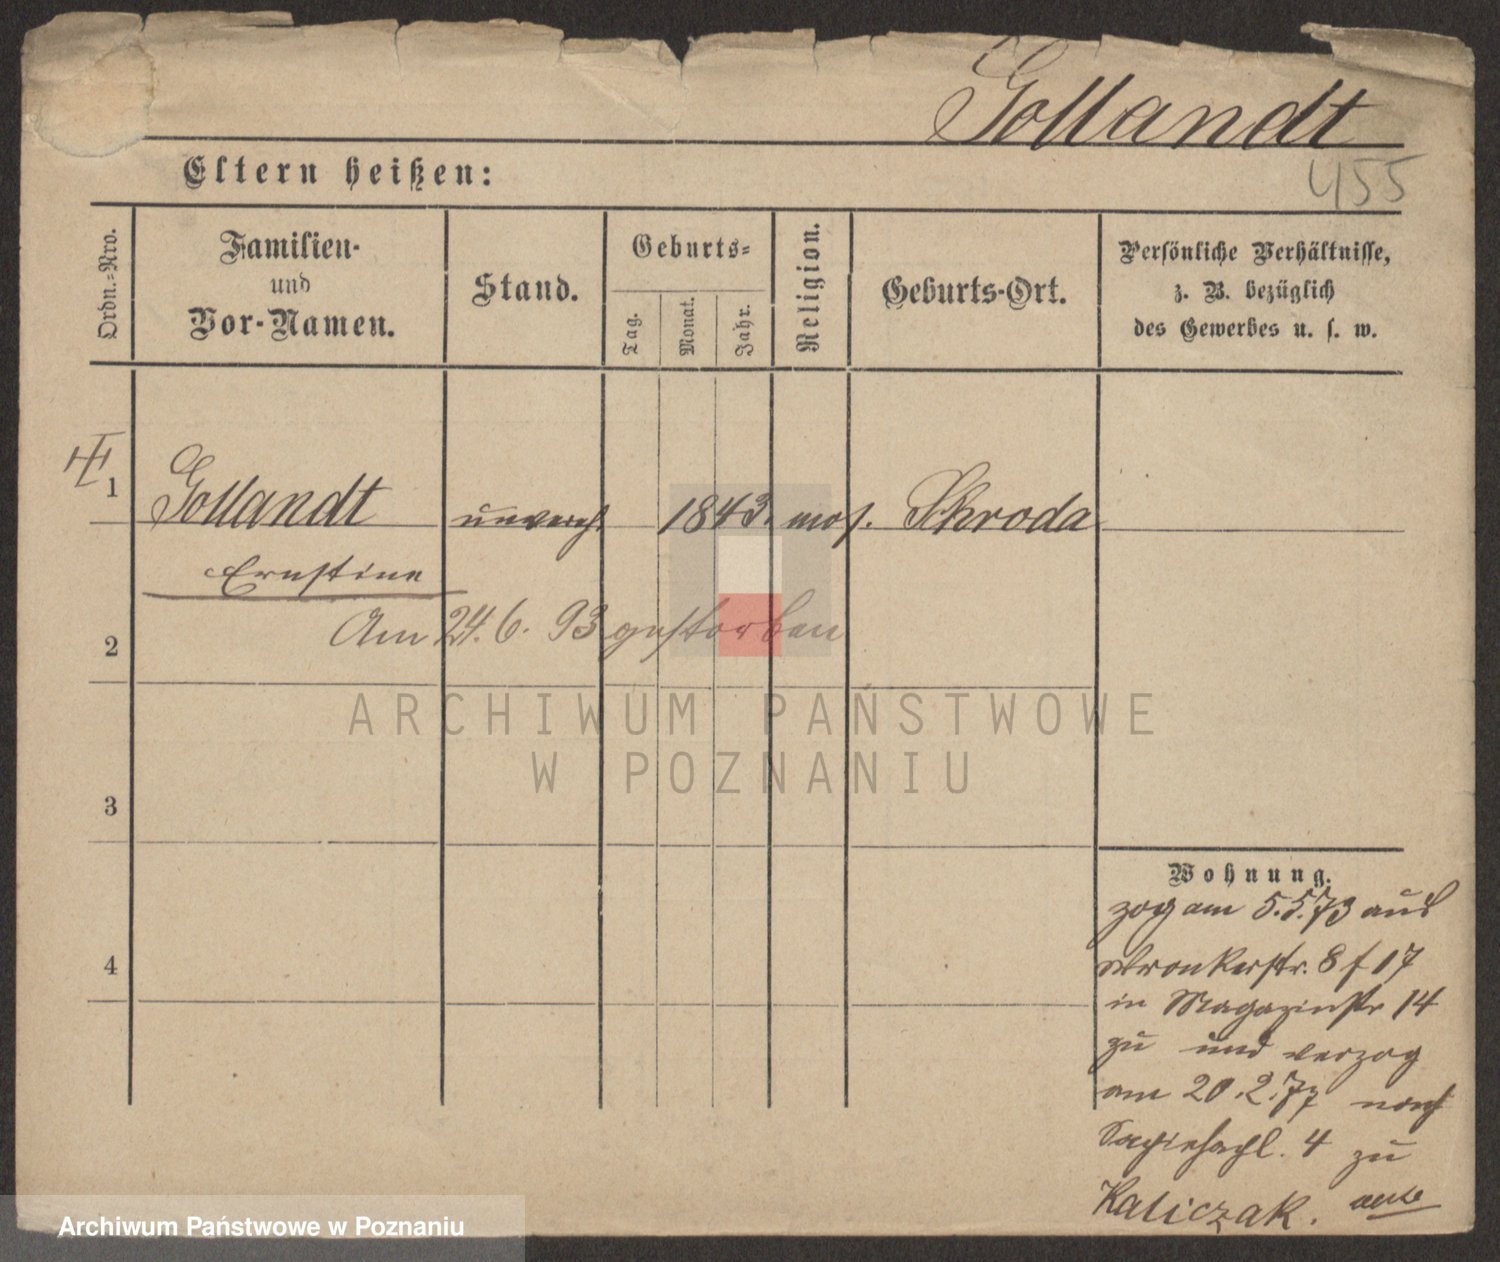 Gollandt
455
Eltern heißen:
Ordn.-Nro.
Familien-
und
Vor-Namen.
Stand.
Geburts-
Tag.
Monat.
Jahr.
Religion.
Geburts-Ort.
Persönliche Verhältnisse,
z. B. bezüglich
des Gewerbes u. s. w.
1 Gollandt unvereh. 1843. mos. Schroda
Ernstine
Am 24. 6. 93 gestorben
2
ARCHIWUM PAŃSTWOWE
W POZNANIU
3
Wohnung.
zog am 5.5.73 aus
Wronkerstr. 8 f 17
4
in Magazinstr 14
zu und verzog
am 20.2.77 nach
4 zu
Kaliczak.
Archiwum Państwowe w Poznaniu